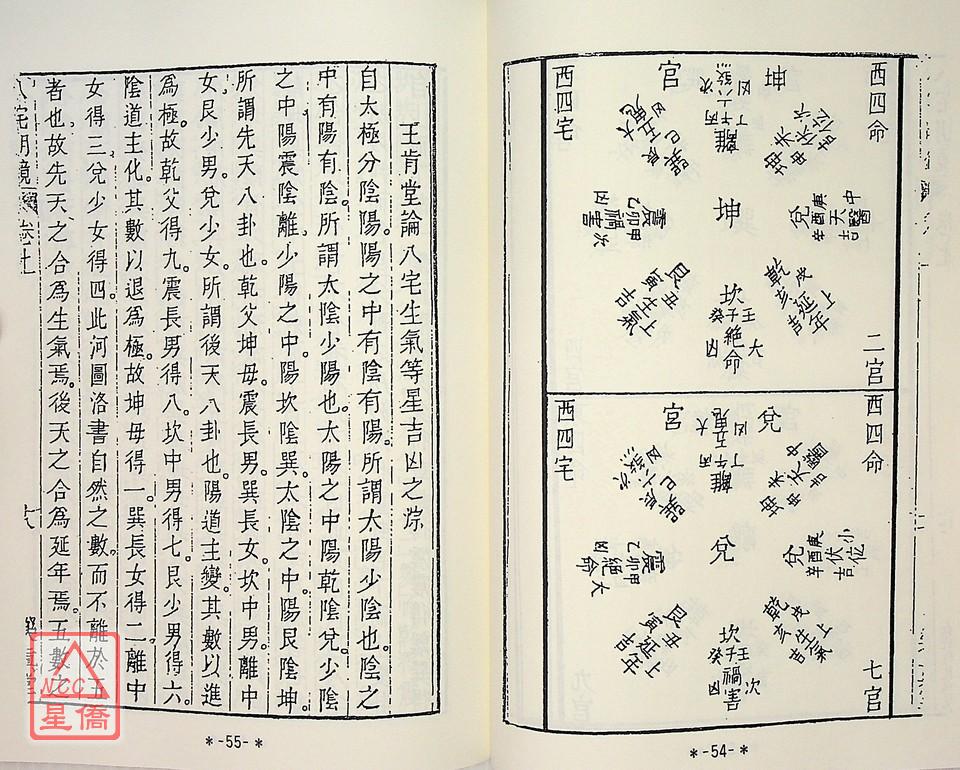 西四命
坤
宮
西四宅
離
丁午丙
六煞
次
凶
坤
申未
伏位
次吉
兌
辛酉庚
天醫
中吉
乾
亥戌
延年
上吉
坎
癸子壬
絕命
大
凶
艮
寅丑
生氣
上吉
震
乙卯甲
禍害
次
凶
巽
辰巳
五鬼
大
凶
坤
二宮
西四命
兌
宮
西四宅
離
丁午丙
五鬼
大
凶
坤
申未
天醫
中吉
兌
辛酉庚
伏位
小吉
乾
亥戌
生氣
上吉
坎
癸子壬
禍害
次
凶
艮
寅丑
延年
上吉
震
乙卯甲
絕命
大
凶
巽
辰巳
六煞
次
凶
兌
七宮
*-54-*
王肯堂論八宅生氣等星吉凶之淙
自太極分陰陽。陽之中有陰有陽。所謂太陽少陰也。陰之
中有陽有陰。所謂太陰少陽也。太陽之中陽乾陰兌。少陰
之中陽震陰離。少陽之中。陽坎陰巽。太陰之中。陽艮陰坤。
所謂先天八卦也。乾父坤母震長男。巽長女。坎中男。離中
女艮少男。兌少女。所謂後天八卦也。陽道主變。其數以進
為極。故乾父得九。震長男得八。坎中男得七。艮少男得六
陰道主化。其數以退為極。故坤母得一。巽長女得二。離中
女得三。兌少女得四。此河圖洛書自然之數。而不離於五
者也。故先天之合為生氣焉。後天之合為延年焉。五數之
八宅明鏡
卷七
*-55-*
NCC
星僑